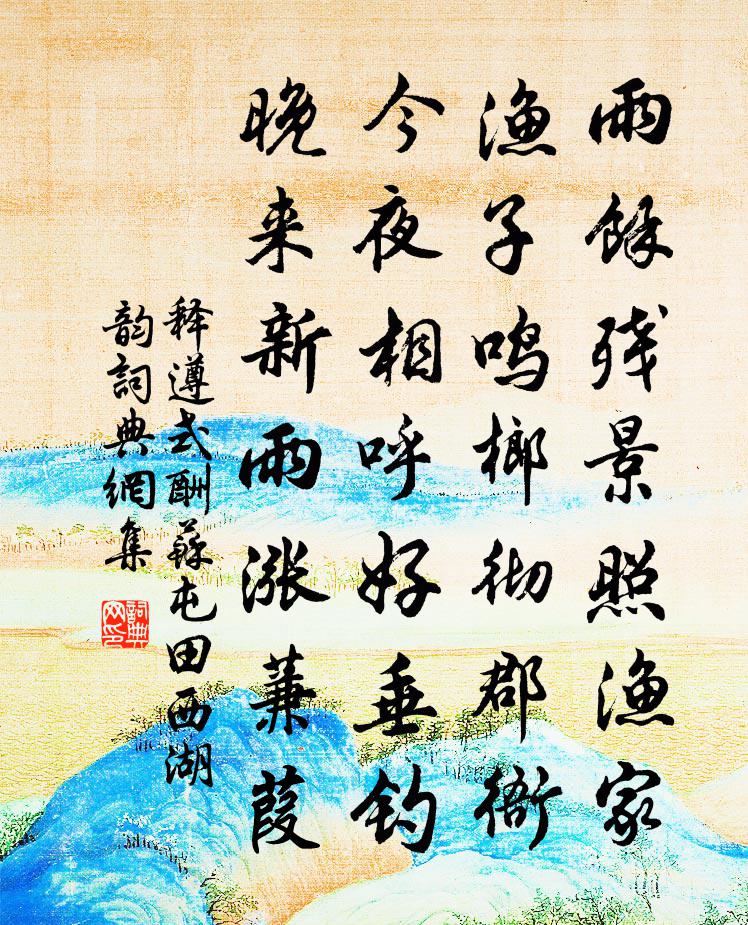 雨餘残景照漁家
漁子鳴榔彻郡衙
今夜相呼好垂钓
晚来新雨涨蒹葭
释遵式酬蘇屯田西湖
韵詞典網集
詞典网印